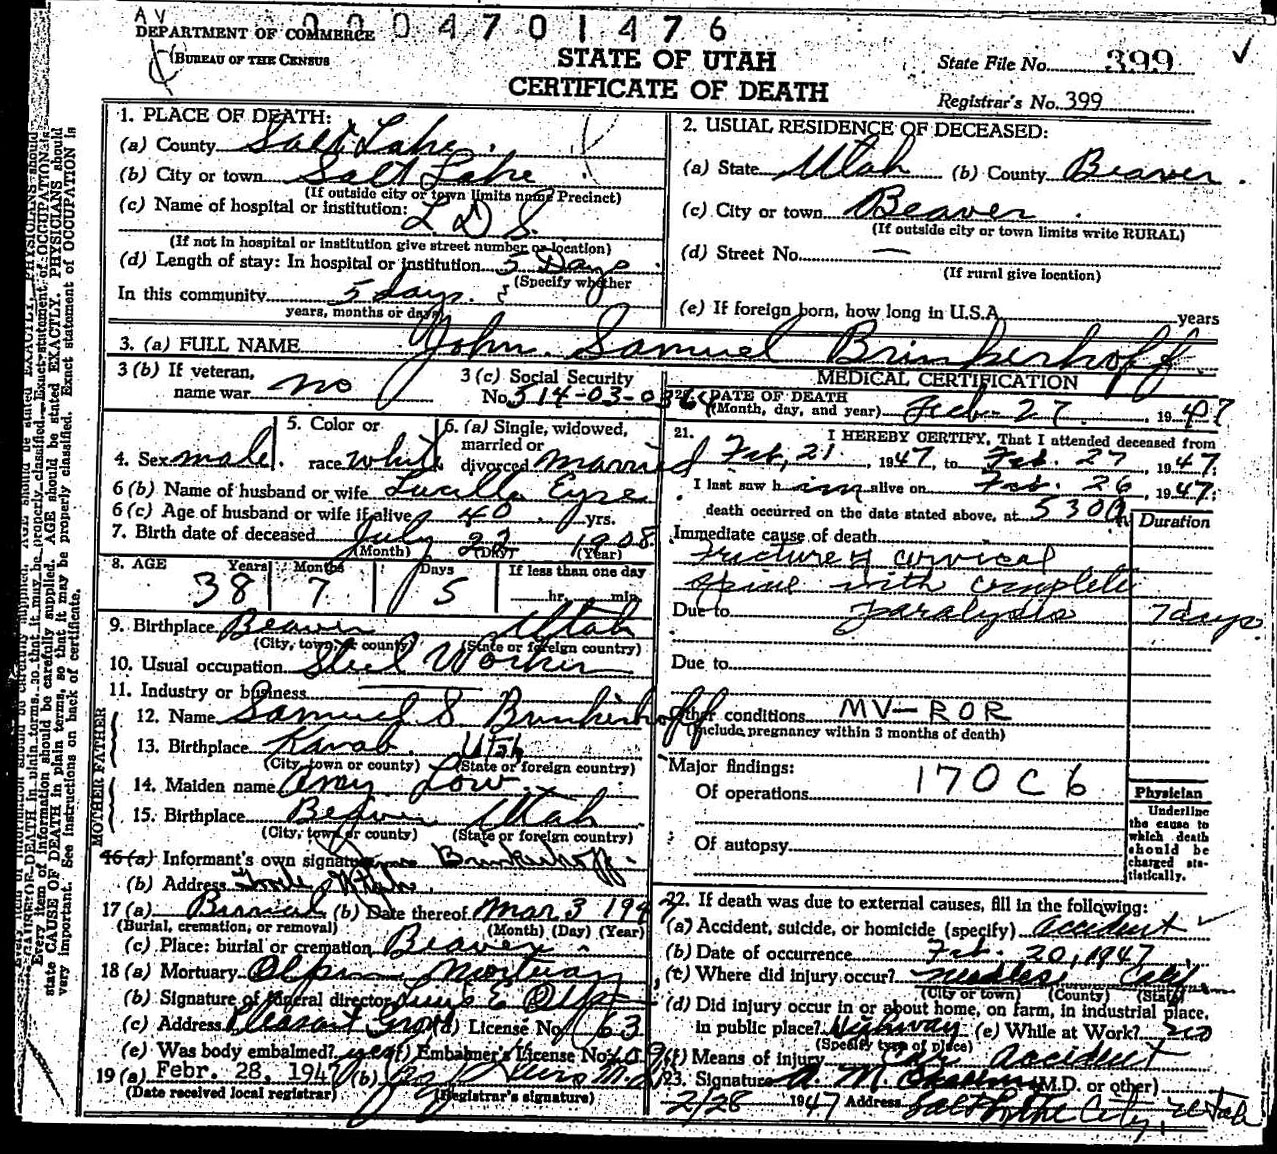 AV 0004701476
DEPARTMENT OF COMMERCE
BUREAU OF THE CENSUS
STATE OF UTAH
CERTIFICATE OF DEATH
State File No. 399
Registrar's No. 399
1. PLACE OF DEATH:
(a) County Salt Lake
(b) City or town Salt Lake
(If outside city or town limits name Precinct)
(c) Name of hospital or institution:
L.D.S.
(If not in hospital or institution give street number or location)
(d) Length of stay: In hospital or institution 5 Days
(Specify whether
In this community 5 days.
years, months or days)
2. USUAL RESIDENCE OF DECEASED:
(a) State Utah (b) County Beaver
(c) City or town Beaver
(If outside city or town limits write RURAL)
(d) Street No. —
(If rural give location)
(e) If foreign born, how long in U.S.A. years
3. (a) FULL NAME John Samuel Brinkerhoff
3 (b) If veteran, name war no
3 (c) Social Security No. 514-03-036
4. Sex male
5. Color or race white
6. (a) Single, widowed, married or divorced married
6 (b) Name of husband or wife Lucille Eyre
6 (c) Age of husband or wife if alive 40 yrs.
7. Birth date of deceased July 22 1908
(Month) (Day) (Year)
8. AGE Years Months Days If less than one day
38 7 5 hr. min.
9. Birthplace Beaver Utah
(City, town, or county) (State or foreign country)
10. Usual occupation Steel Worker
11. Industry or business
FATHER
12. Name Samuel S Brinkerhoff
13. Birthplace Kanab Utah
(City, town or county) (State or foreign country)
MOTHER
14. Maiden name Amy Low
15. Birthplace Beaver Utah
(City, town or county) (State or foreign country)
16 (a) Informant's own signature Brinkerhoff
(b) Address Utah
17 (a) Burial (b) Date thereof Mar 3 1947
(Burial, cremation, or removal) (Month) (Day) (Year)
(c) Place: burial or cremation Beaver
18 (a) Mortuary Olpin Mortuary
(b) Signature of funeral director E Olpin
(c) Address Pleasant Grove (d) License No. 63
(e) Was body embalmed? yes (f) Embalmer's License No.
19 (a) Febr. 28, 1947 (b)
(Date received local registrar) (Registrar's signature)
MEDICAL CERTIFICATION
20. DATE OF DEATH
(Month, day, and year) Feb 27 1947
21. I HEREBY CERTIFY, That I attended deceased from
Feb, 21, 1947, to Feb. 27, 1947;
I last saw him alive on Feb. 26, 1947;
death occurred on the date stated above, at 530a m.
Duration
Immediate cause of death
Fracture of cervical
spine with complete
Due to paralysis 7 days
Due to
Other conditions MV-ROR
(Include pregnancy within 3 months of death)
Major findings: 170C6
Of operations
Of autopsy
Physician
Underline
the cause to
which death
should be
charged sta-
tistically.
22. If death was due to external causes, fill in the following:
(a) Accident, suicide, or homicide (specify) accident
(b) Date of occurrence Feb. 20, 1947
(c) Where did injury occur? Needles, Calif
(City or town) (County) (State)
(d) Did injury occur in or about home, on farm, in industrial place,
in public place? Highway (e) While at Work? no
(Specify type of place)
(f) Means of injury Car Accident
23. Signature A. M. (M.D. or other)
2/28 1947 Address Salt Lake City, Utah
Every item of information should be carefully supplied. AGE should be stated EXACTLY. PHYSICIANS should
state CAUSE OF DEATH in plain terms, so that it may be properly classified. Exact statement of OCCUPATION is
very important. See instructions on back of certificate.